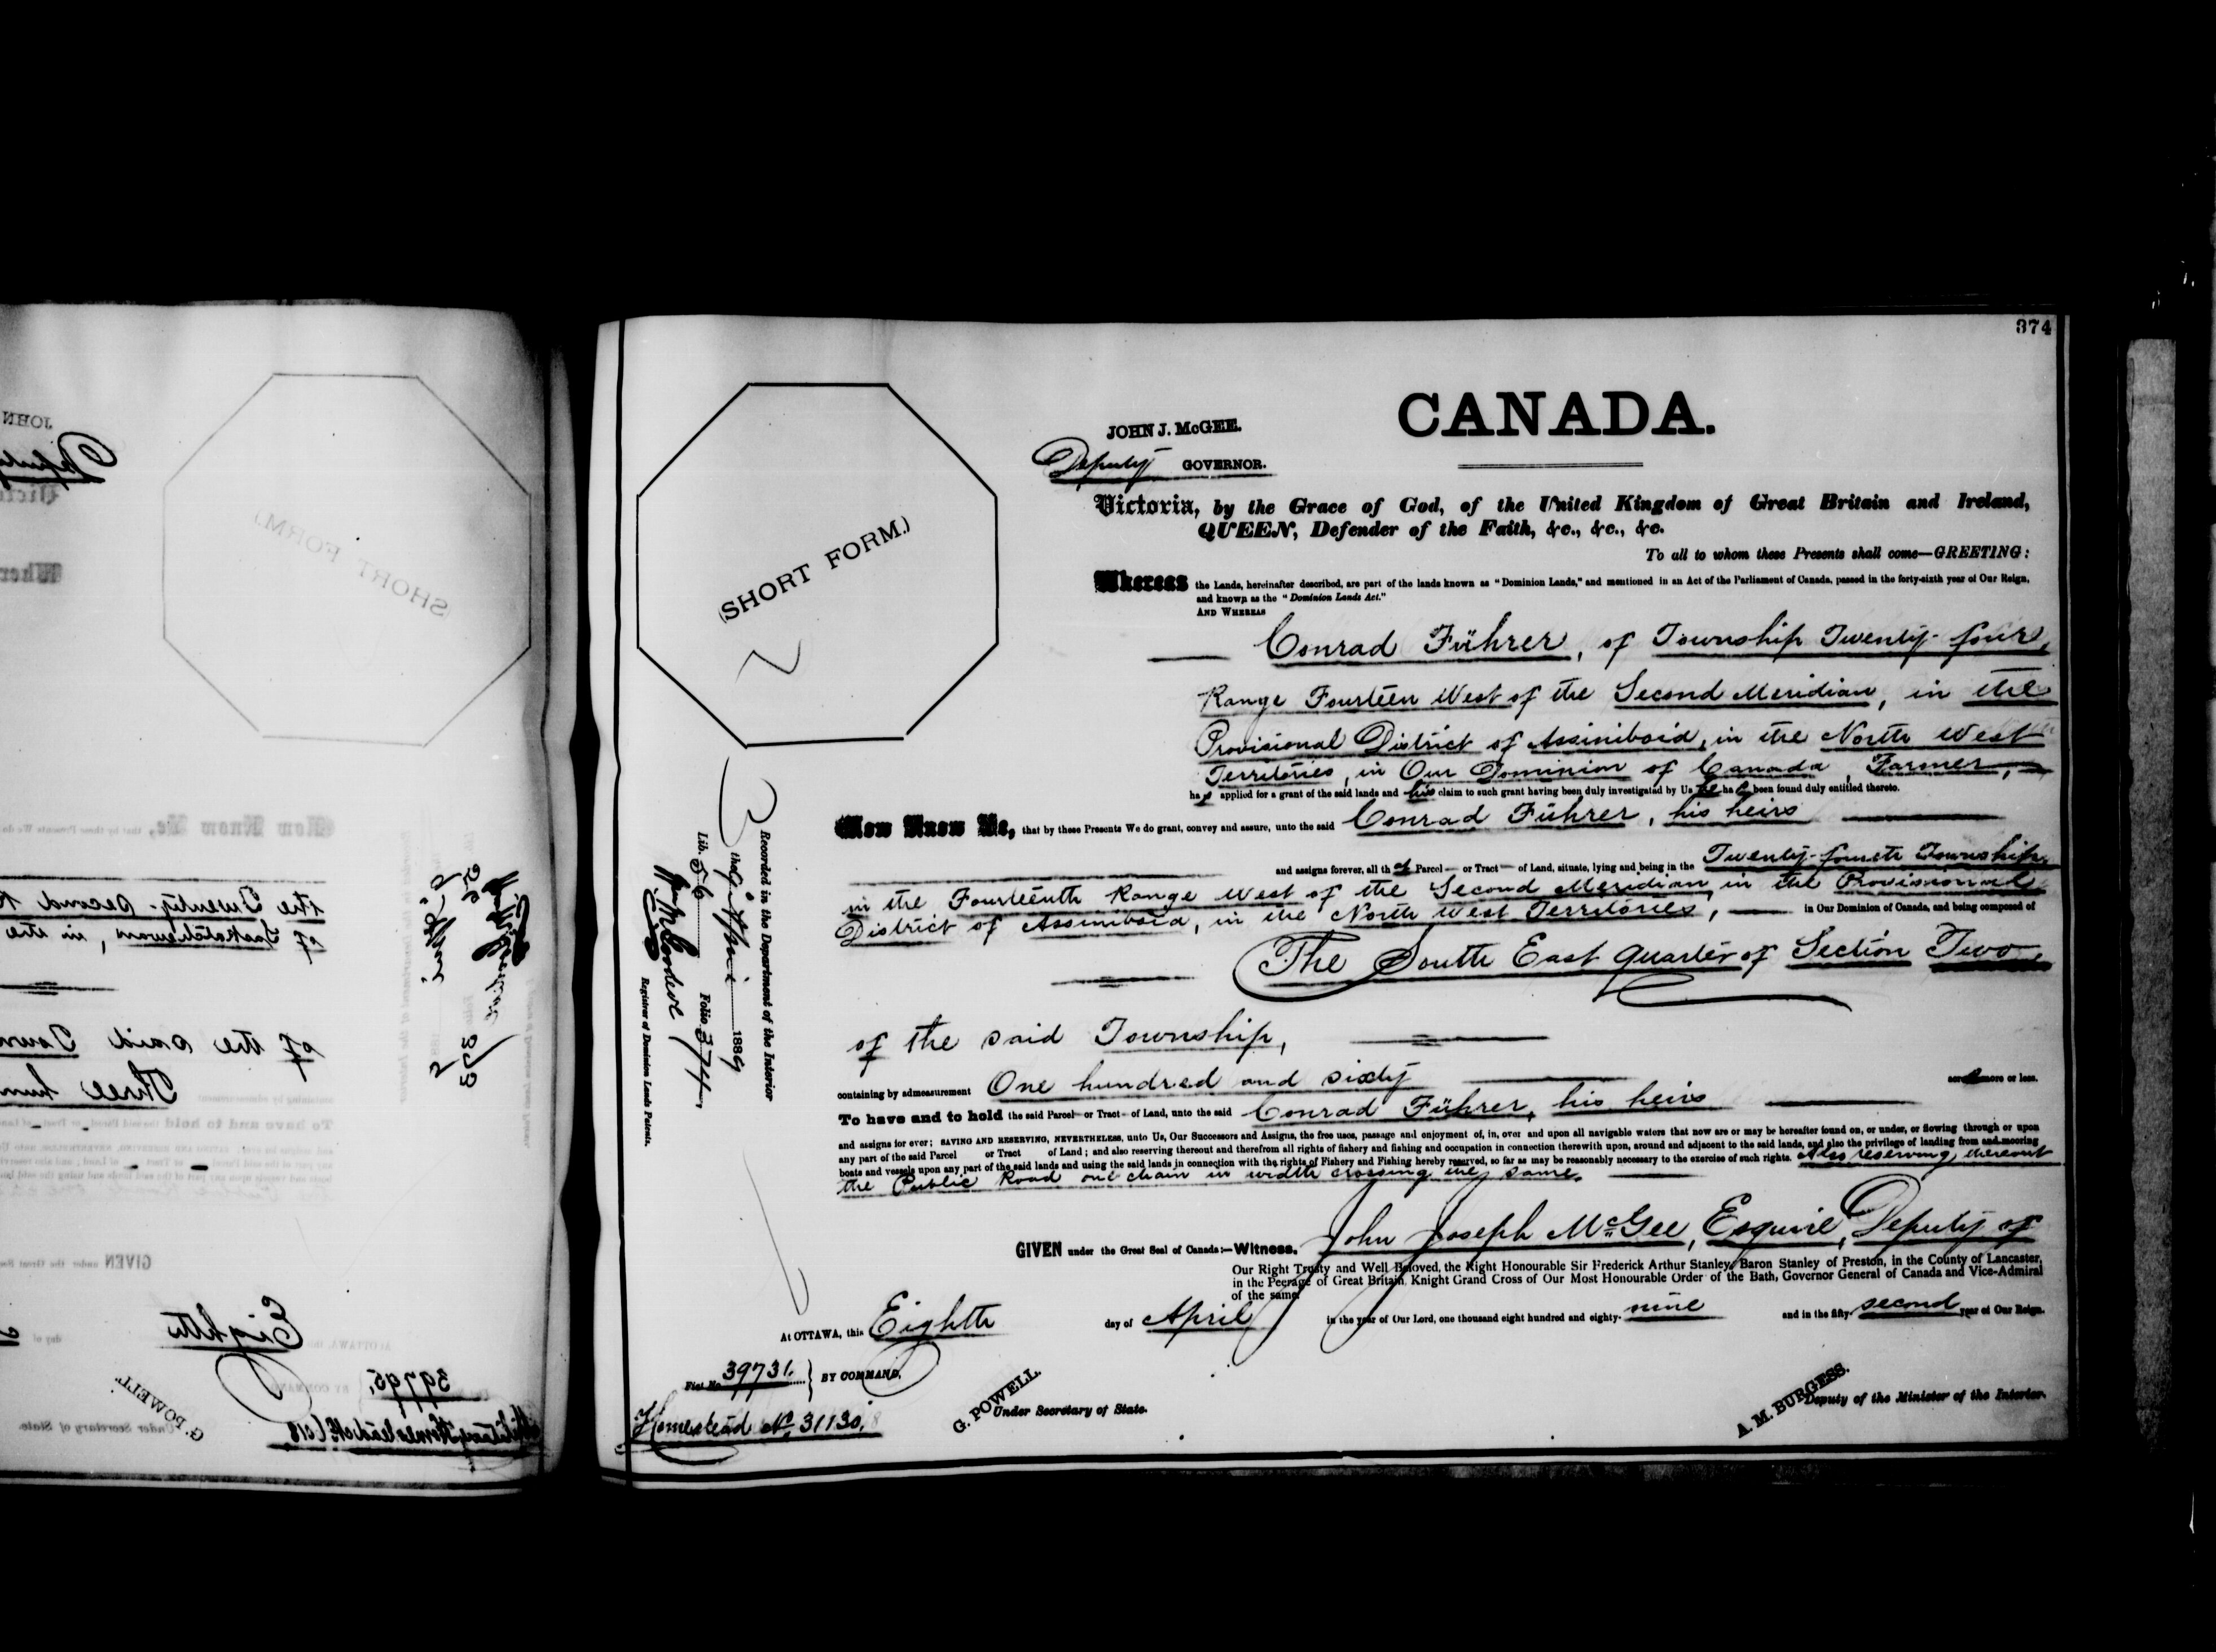 374
CANADA.
JOHN J. McGEE.
Deputy GOVERNOR.
(SHORT FORM.)
Victoria, by the Grace of God, of the United Kingdom of Great Britain and Ireland,
QUEEN, Defender of the Faith, &c., &c., &c.
To all to whom these Presents shall come—GREETING:
Whereas the Lands, hereinafter described, are part of the lands known as "Dominion Lands," and mentioned in an Act of the Parliament of Canada, passed in the forty-sixth year of Our Reign,
and known as the "Dominion Lands Act."
AND WHEREAS
Conrad Führer, of Township Twenty-four,
Range Fourteen West of the Second Meridian, in the
Provisional District of Assiniboia, in the North West
Territories, in Our Dominion of Canada, Farmer,
has applied for a grant of the said lands and his claim to such grant having been duly investigated by Us he has been found duly entitled thereto.
Now Know Ye, that by these Presents We do grant, convey and assure, unto the said Conrad Führer, his heirs
and assigns forever, all that Parcel or Tract of Land, situate, lying and being in the Twenty-fourth Township,
in the Fourteenth Range West of the Second Meridian, in the Provisional
District of Assiniboia, in the North West Territories, in Our Dominion of Canada, and being composed of
The South East quarter of Section Two,
of the said Township,
containing by admeasurement One hundred and sixty acres more or less.
To have and to hold the said Parcel or Tract of Land, unto the said Conrad Führer, his heirs
and assigns for ever; SAVING AND RESERVING, NEVERTHELESS, unto Us, Our Successors and Assigns, the free uses, passage and enjoyment of, in, over and upon all navigable waters that now are or may be hereafter found on, or under, or flowing through or upon
any part of the said Parcel or Tract of Land; and also reserving thereout and therefrom all rights of fishery and fishing and occupation in connection therewith upon, around and adjacent to the said lands, and also the privilege of landing from and mooring
boats and vessels upon any part of the said lands and using the said lands in connection with the rights of Fishery and Fishing hereby reserved, so far as may be reasonably necessary to the exercise of such rights. Also reserving thereout
the Public Road one chain in width crossing the same.
GIVEN under the Great Seal of Canada:—Witness, John Joseph McGee, Esquire, Deputy of
Our Right Trusty and Well Beloved, the Right Honourable Sir Frederick Arthur Stanley, Baron Stanley of Preston, in the County of Lancaster,
in the Peerage of Great Britain, Knight Grand Cross of Our Most Honourable Order of the Bath, Governor General of Canada and Vice-Admiral
of the same
At OTTAWA, this Eighth day of April in the year of Our Lord, one thousand eight hundred and eighty-nine and in the fifty-second year of Our Reign.
Fiat No. 39731. BY COMMAND,
Homestead No. 31130.
G. POWELL.
Under Secretary of State.
A. M. BURGESS.
Deputy of the Minister of the Interior.
Recorded in the Department of the Interior
the 9th April 1889
Lib. 56 Folio 374,
Registrar of Dominion Lands Patents.